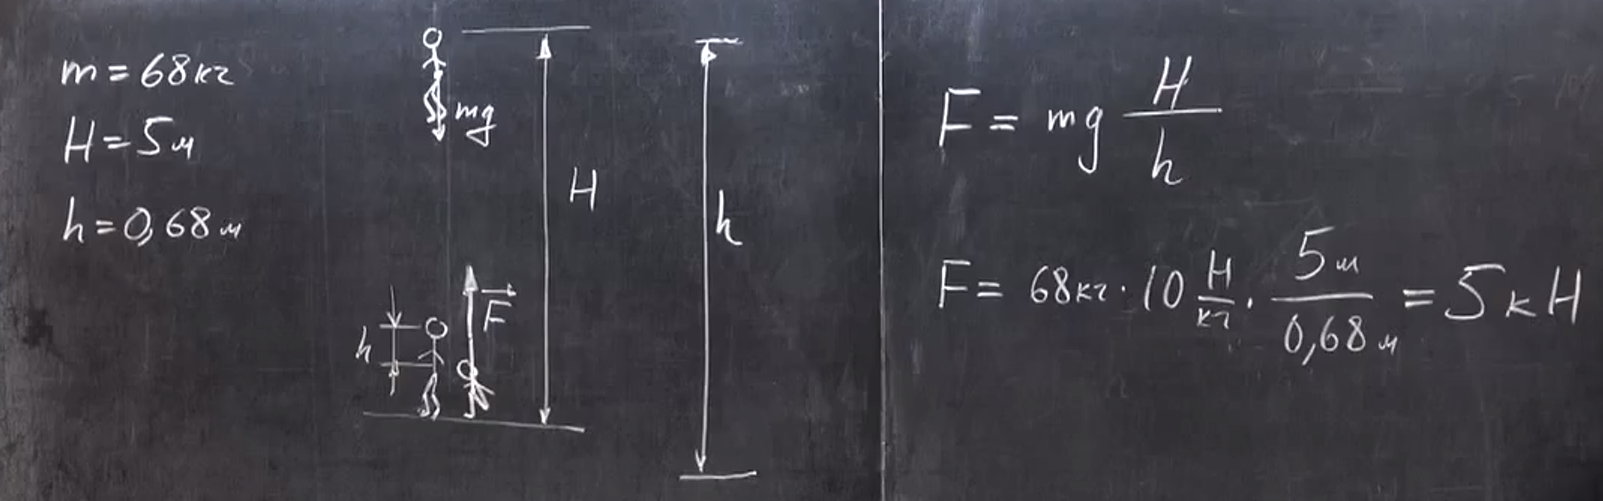 m = 68 кг
H = 5 м
h = 0,68 м
mg
H
h
F
h
F = mg H/h
F = 68 кг · 10 Н/кг · 5 м/0,68 м = 5 кН